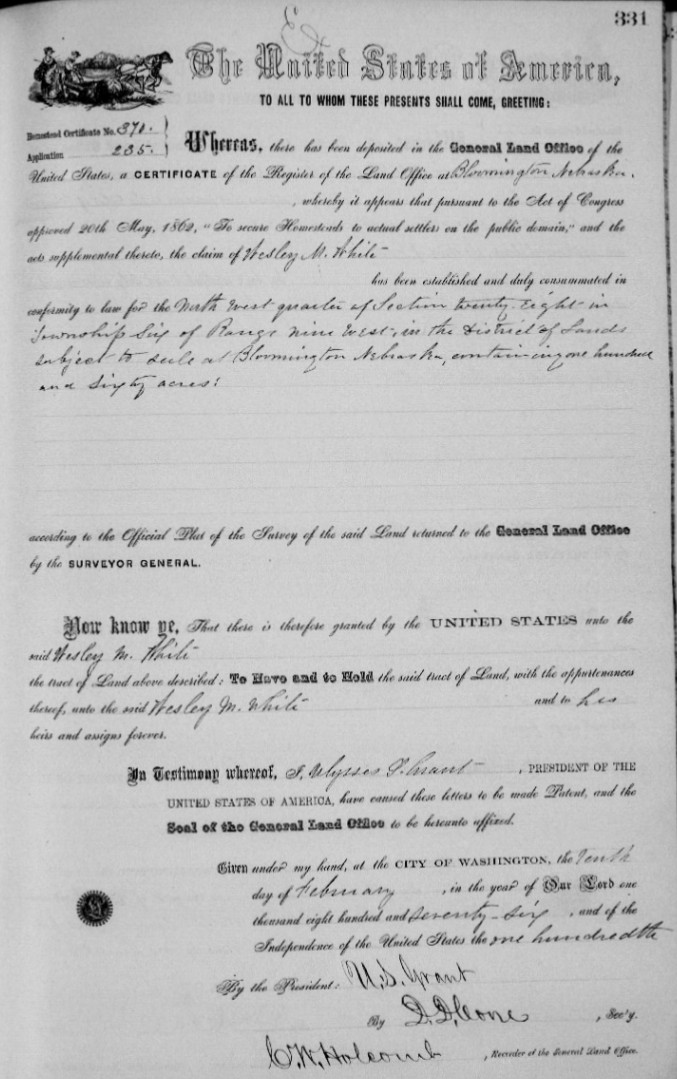 331
The United States of America,
TO ALL TO WHOM THESE PRESENTS SHALL COME, GREETING:
Homestead Certificate No. 371.
Application 235.
Whereas, there has been deposited in the General Land Office of the
United States, a CERTIFICATE of the Register of the Land Office at Bloomington Nebraska.
, whereby it appears that pursuant to the Act of Congress
approved 20th May, 1862, "To secure Homesteads to actual settlers on the public domain," and the
acts supplemental thereto, the claim of Wesley M. White
has been established and duly consummated in
conformity to law for the North West quarter of Section twenty-Eight in
Township Six of Range nine West, in the District of Lands
subject to sale at Bloomington Nebraska, containing one hundred
and Sixty acres:
according to the Official Plat of the Survey of the said Land returned to the General Land Office
by the SURVEYOR GENERAL.
Now know ye, That there is therefore granted by the UNITED STATES unto the
said Wesley M. White
the tract of Land above described: To Have and to Hold the said tract of Land, with the appurtenances
thereof, unto the said Wesley M. White and to his
heirs and assigns forever.
In Testimony whereof, I, Ulysses S. Grant, PRESIDENT OF THE
UNITED STATES OF AMERICA, have caused these letters to be made Patent, and the
Seal of the General Land Office to be hereunto affixed.
Given under my hand, at the CITY OF WASHINGTON, the Tenth
day of February, in the year of Our Lord one
thousand eight hundred and Seventy-Six, and of the
Independence of the United States the one hundredth
By the President: U.S. Grant
By D.D. Cone, Sec'y.
C.W. Holcomb, Recorder of the General Land Office.